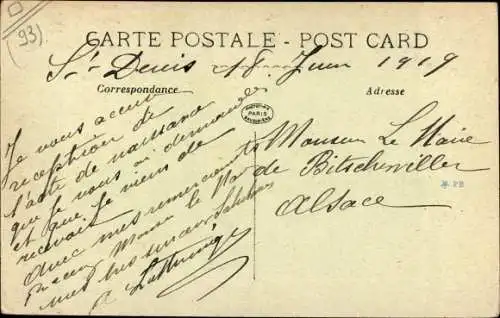 (93)
CARTE POSTALE - POST CARD
St-Denis 18 Juin 1919
Correspondance
Adresse
PARIS
Je vous accuse
réception de
l'acte de naissance
que je vous ai demandé
et que je viens de
recevoir
Avec mes remerciements
Recevez Monsieur le Maire
mes bien sincères Salutations
Monsieur Le Maire
de Bitschwiller
Alsace